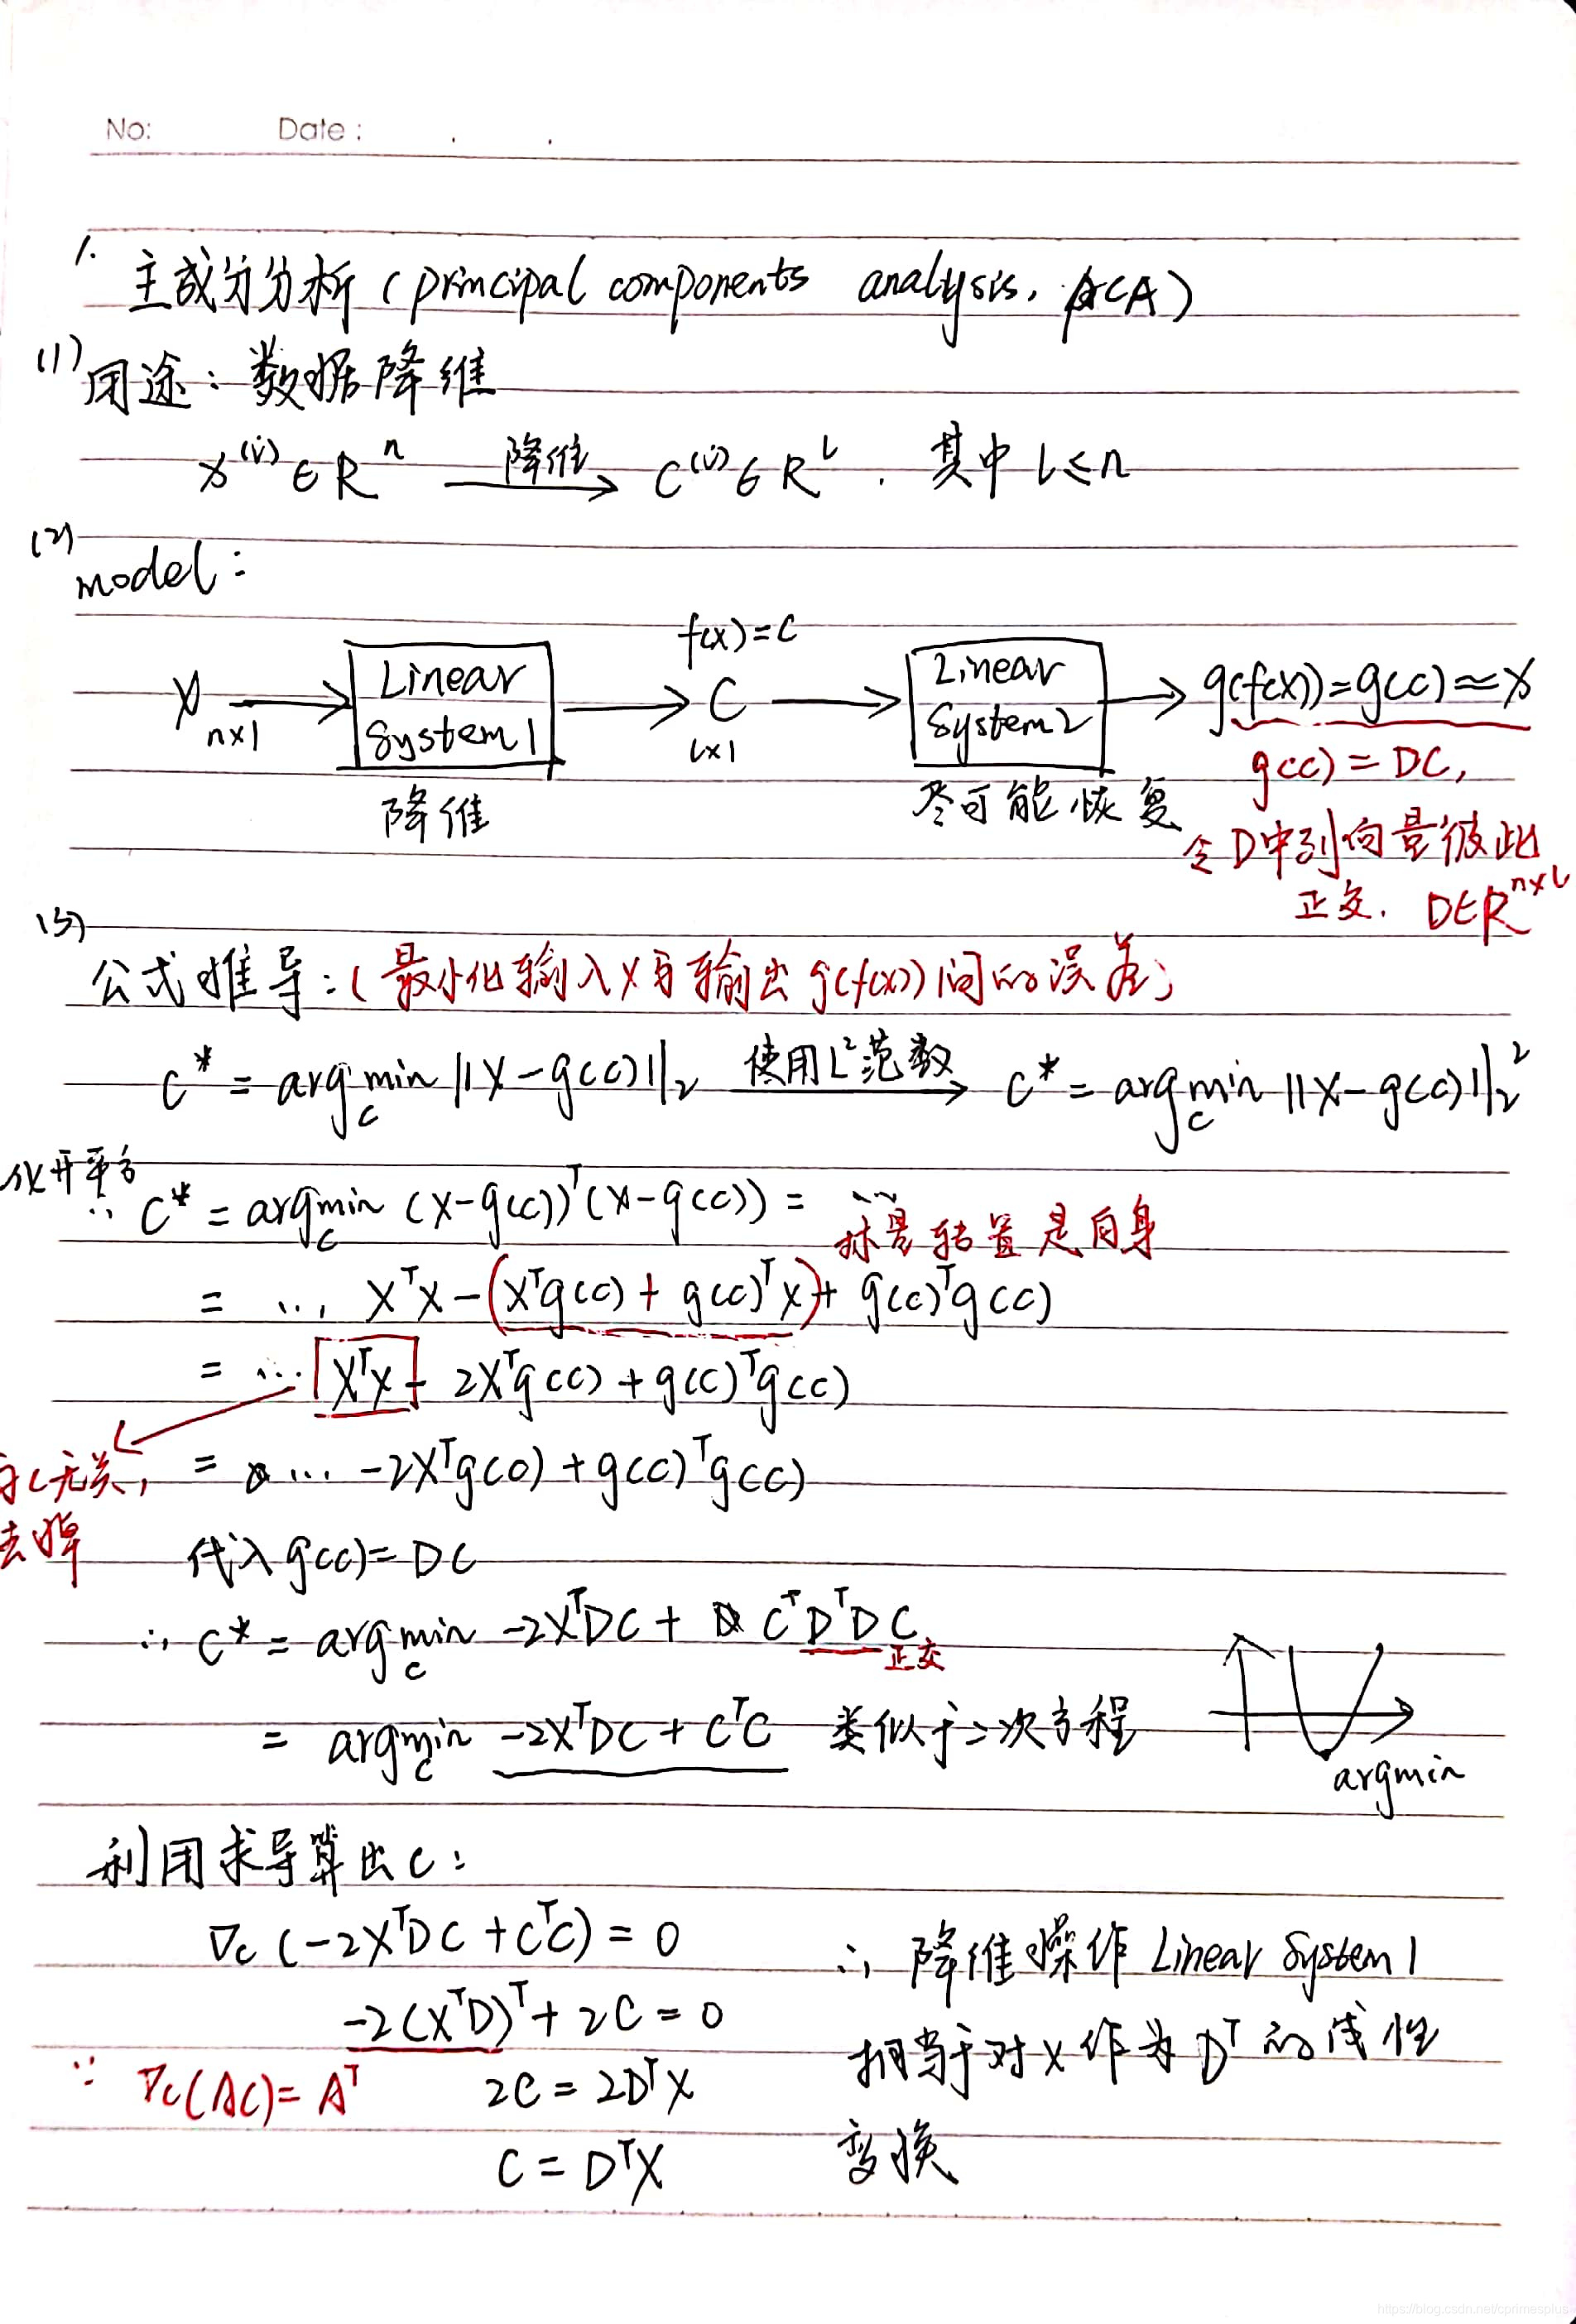 No: Date: . .
1. 主成分分析 (principal components analysis, PCA)
(1) 用途: 数据降维
x⁽ⁱ⁾ ∈ Rⁿ 降维→ C⁽ⁱ⁾ ∈ Rˡ. 其中 l ≤ n
(2) model:
f(x)=C
X n×1 → Linear System1 → C l×1 → Linear System2 → g(f(x))=g(c)≈X
降维 尽可能恢复
g(c) = DC,
令D中列向量彼此
正交. D∈Rⁿˣˡ
(3) 公式推导: (最小化输入X与输出g(f(x))间的误差)
C* = argmin_c ||X-g(c)||₂ 使用L²范数→ C* = argmin_c ||X-g(c)||₂²
开平方
∵ C* = argmin_c (X-g(c))ᵀ(X-g(c)) = ...
标量转置是自身
= ... XᵀX-(Xᵀg(c)+g(c)ᵀX)+g(c)ᵀg(c)
= ... XᵀX - 2Xᵀg(c)+g(c)ᵀg(c)
与C无关,
去掉
= ... -2Xᵀg(c)+g(c)ᵀg(c)
代入g(c)=DC
∴ C* = argmin_c -2XᵀDC + CᵀDᵀDC
正交
= argmin_c -2XᵀDC + CᵀC 类似于二次方程
argmin
利用求导算出C:
∇c(-2XᵀDC+CᵀC)=0
-2(XᵀD)ᵀ+2C=0
∵ ∇c(AC)=Aᵀ
2C=2DᵀX
C=DᵀX
∴ 降维操作 Linear System1
相当于对X作为Dᵀ的线性
变换
https://blog.csdn.net/cprimesplus